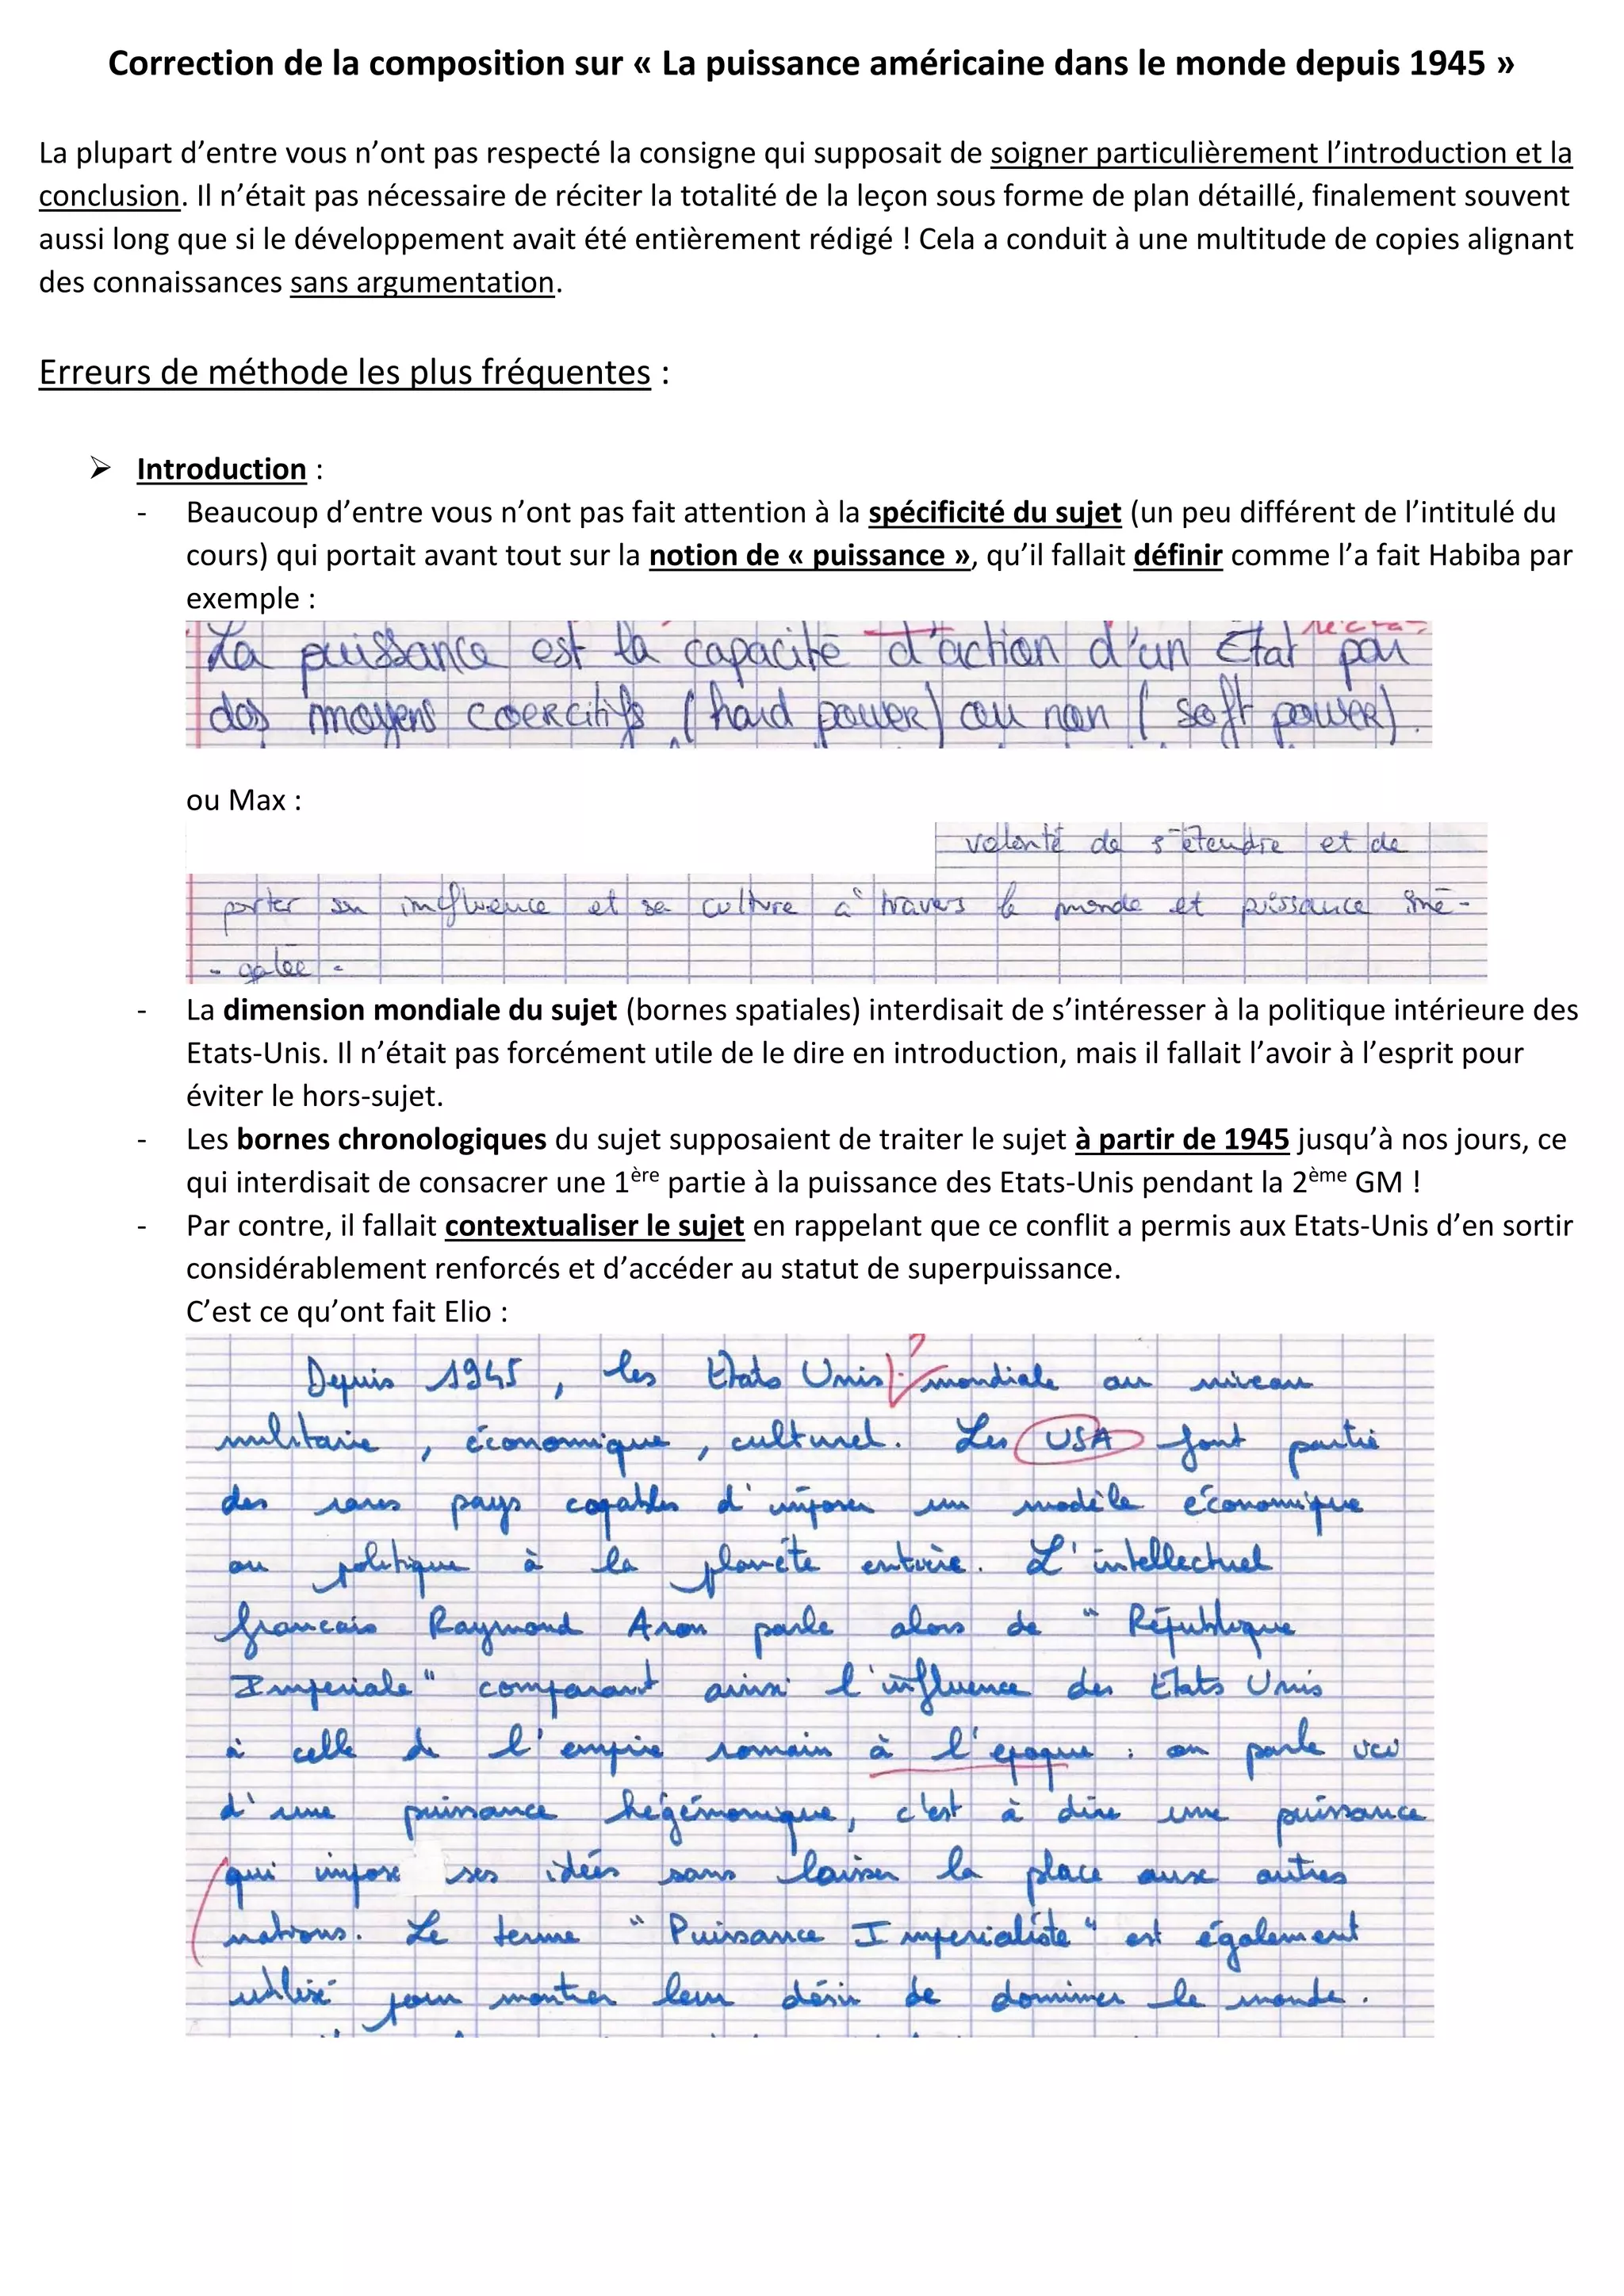 Correction de la composition sur « La puissance américaine dans le monde depuis 1945 »
La plupart d’entre vous n’ont pas respecté la consigne qui supposait de soigner particulièrement l’introduction et la
conclusion. Il n’était pas nécessaire de réciter la totalité de la leçon sous forme de plan détaillé, finalement souvent
aussi long que si le développement avait été entièrement rédigé ! Cela a conduit à une multitude de copies alignant
des connaissances sans argumentation.
Erreurs de méthode les plus fréquentes :
➢ Introduction :
- Beaucoup d’entre vous n’ont pas fait attention à la spécificité du sujet (un peu différent de l’intitulé du
cours) qui portait avant tout sur la notion de « puissance », qu’il fallait définir comme l’a fait Habiba par
exemple :
La puissance est la capacité d'action d'un Etat par
des moyens coercitifs (hard power) ou non (soft power).
ou Max :
volonté de s'étendre et de
porter son influence et sa culture à travers le monde et puissance iné-
- galée -
- La dimension mondiale du sujet (bornes spatiales) interdisait de s’intéresser à la politique intérieure des
Etats-Unis. Il n’était pas forcément utile de le dire en introduction, mais il fallait l’avoir à l’esprit pour
éviter le hors-sujet.
- Les bornes chronologiques du sujet supposaient de traiter le sujet à partir de 1945 jusqu’à nos jours, ce
qui interdisait de consacrer une 1ère partie à la puissance des Etats-Unis pendant la 2ème GM !
- Par contre, il fallait contextualiser le sujet en rappelant que ce conflit a permis aux Etats-Unis d’en sortir
considérablement renforcés et d’accéder au statut de superpuissance.
C’est ce qu’ont fait Elio :
Depuis 1945, les Etats Unis ? mondiale au niveau
militaire, économique, culturel. Les USA font partie
des rares pays capables d'imposer un modèle économique
ou politique à la planète entière. L'intellectuel
francais Raymond Aron parle alors de "République
Imperiale" comparant ainsi l'influence des Etats Unis
à celle de l'empire romain à l'epoque : on parle ici
d'une puissance hégémonique, c'est à dire une puissance
qui impose ses idées sans laisser la place aux autres
nations. Le terme "Puissance Imperialiste" est également
utilisé pour montrer leur désir de dominer le monde.